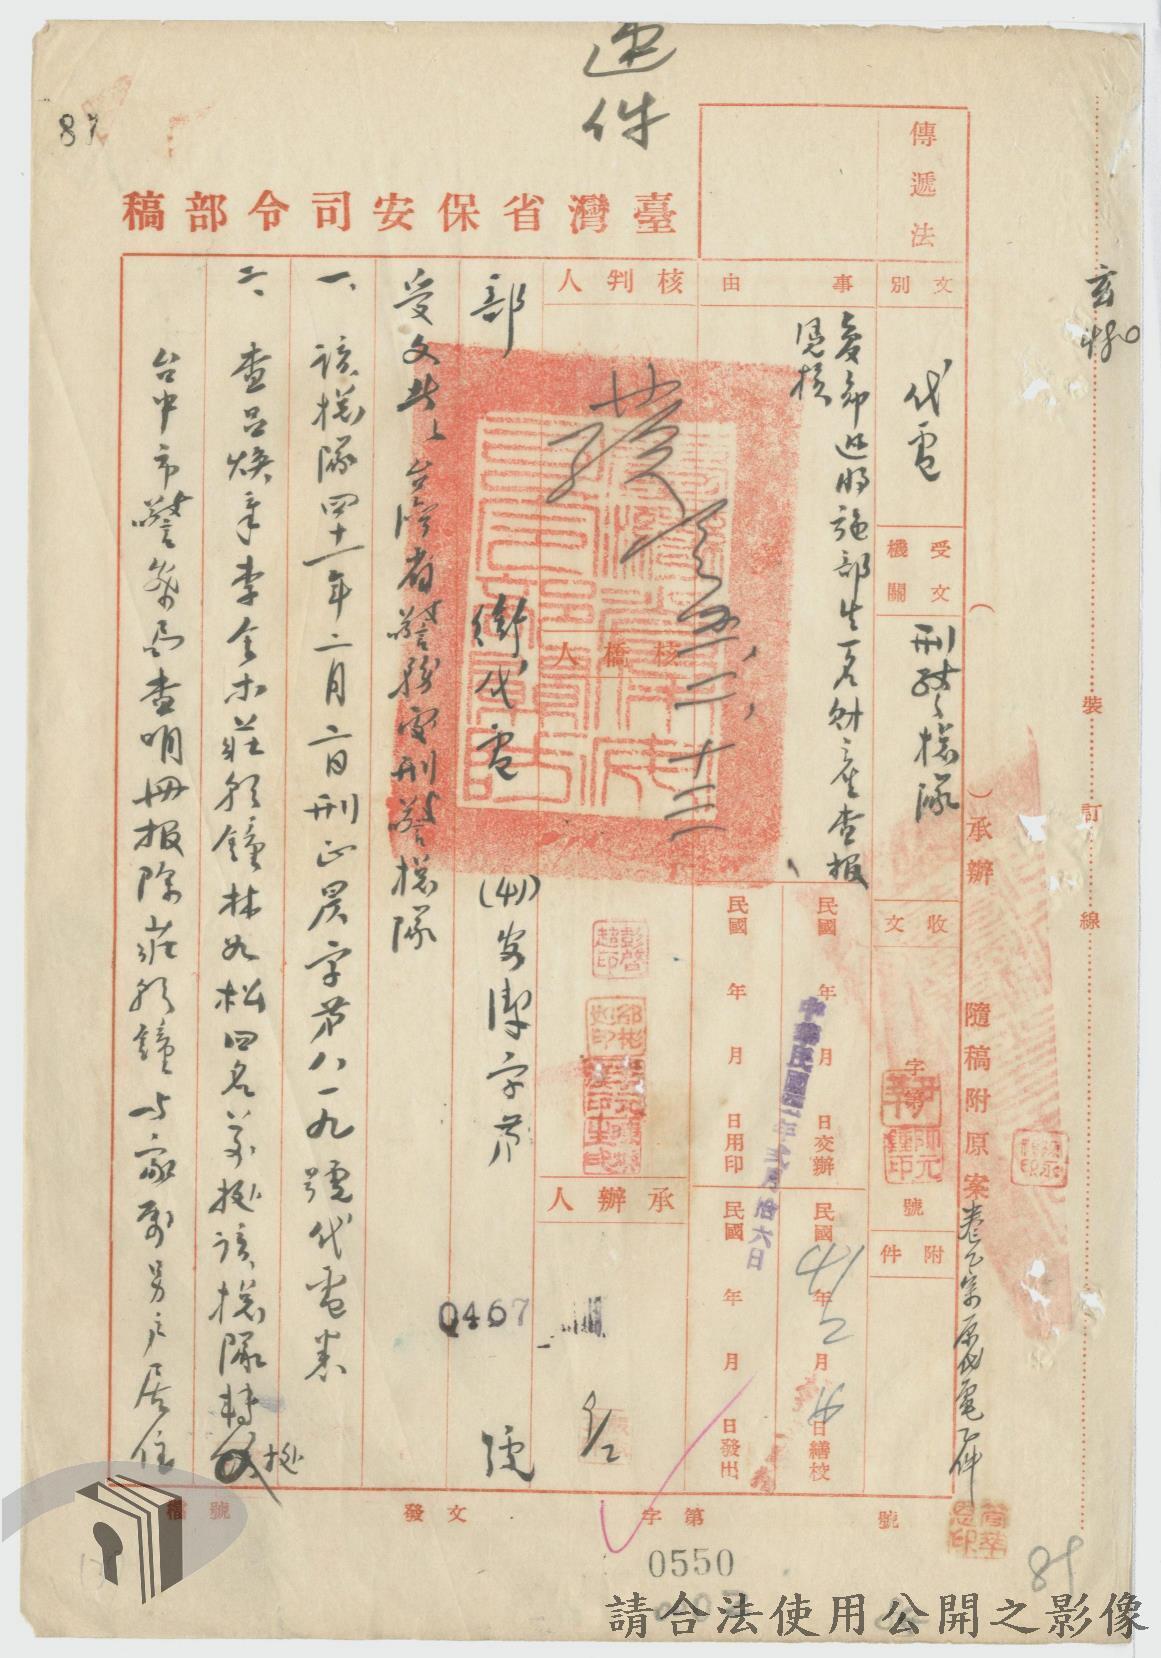 速件
87
臺灣省保安司令部稿
傳遞法
文別
代電
受文機關
刑警總隊
收文
字第
號
附件
事由
憑核
核判人
核稿人
承辦人
民國 年 月 日交辦
民國 41年2月16日繕校
民國 年 月 日用印
民國 年 月 日發出
中華民國 年貳月拾六日
部 銜代電 (41)安潔字第
0467
號
受文者、台灣省警務處刑警總隊
一、該總隊四十一年二月二日刑正晨字第八一九號代電悉
二、查呂煥章李金木莊朝鐘林如松四名前據該總隊轉據
台中市警察局查明冊報除莊朝鐘與家屬另戶居住
裝訂線
承辦
隨稿附原案
檔號
發文
字第
號
0550
89
請合法使用公開之影像